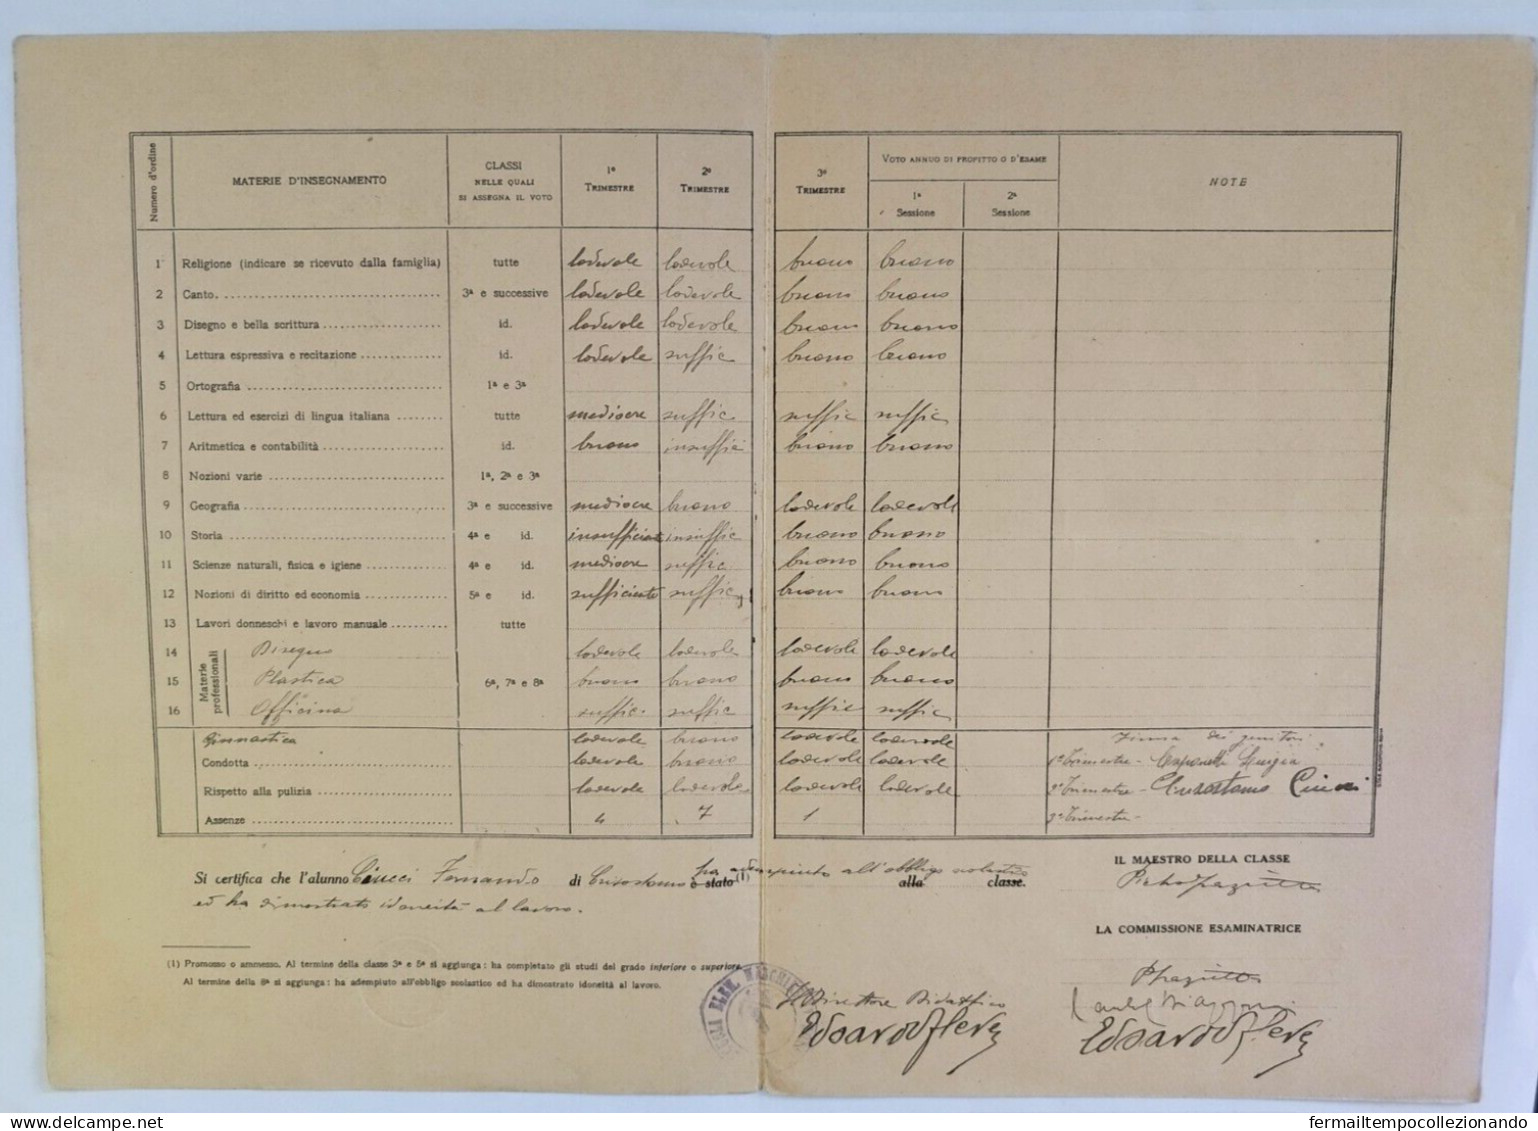 Numero d'ordine | MATERIE D'INSEGNAMENTO | CLASSI NELLE QUALI SI ASSEGNA IL VOTO | 1º TRIMESTRE | 2º TRIMESTRE | 3º TRIMESTRE | VOTO ANNUO DI PROFITTO O D'ESAME | NOTE
1ª Sessione | 2ª Sessione
1 Religione (indicare se ricevuto dalla famiglia) tutte lodevole lodevole buono buono
2 Canto 3ª e successive lodevole lodevole buono buono
3 Disegno e bella scrittura id. lodevole lodevole buono buono
4 Lettura espressiva e recitazione id. lodevole suffic buono buono
5 Ortografia 1ª e 3ª
6 Lettura ed esercizi di lingua italiana tutte mediocre suffic. suffic suffic
7 Aritmetica e contabilità id. buono insuffic buono buono
8 Nozioni varie 1ª, 2ª e 3ª
9 Geografia 3ª e successive mediocre buono lodevole lodevole
10 Storia 4ª e id. insufficiente insuffic buono buono
11 Scienze naturali, fisica e igiene 4ª e id. mediocre suffic. buono buono
12 Nozioni di diritto ed economia 5ª e id. sufficiente suffic buono buono
13 Lavori donneschi e lavoro manuale tutte
Materie professionali
14 Disegno lodevole lodevole lodevole lodevole
15 Plastica 6ª, 7ª e 8ª buono buono buono buono
16 Officina suffic. suffic suffic suffic
Ginnastica lodevole buono lodevole lodevole Firma dei genitori
Condotta lodevole buono lodevole lodevole 1º Trimestre - Luigia
Rispetto alla pulizia lodevole lodevole lodevole lodevole 2º Trimestre - Crisostomo Ciucci
Assenze 4 7 1 3º Trimestre -
Si certifica che l'alunno Ciucci Fernando di Crisostomo è stato (1) ha adempiuto all'obbligo scolastico alla classe.
ed ha dimostrato idoneità al lavoro.
IL MAESTRO DELLA CLASSE
LA COMMISSIONE ESAMINATRICE
(1) Promosso o ammesso. Al termine della classe 3ª e 5ª si aggiunga: ha completato gli studi del grado inferiore o superiore.
Al termine della 8ª si aggiunga: ha adempiuto all'obbligo scolastico ed ha dimostrato idoneità al lavoro.
Il Direttore Didattico
fermailtempocollezionando